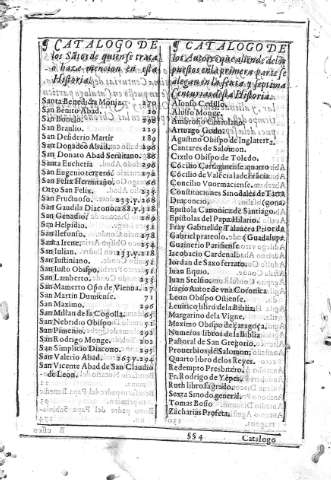 ¶ CATALOGO DE
los Sãtos de quien se trata
o haze mencion en esta
Historia.
Santa Benedita Monja. 270
San Benito Abad. 10
San Boncio. 298
San Braulio. 189
San Desiderio Martir 189
San Donadeo Abad. 298
San Donato Abad Seruitano. 88
Santa Eucheria 298
San Eugenio tercero.
San Felix Hermitaño. 66
Otto San Felix. 234
San Fructuoso. 233. y. 268
San Gaudia Diaconissa 28. y. 318
San Genadio. 269
San Helpidio. 52
San Ilefonso. 271
Santa Irene. 254
San Iulian. 233. y. 218
San Iustiniano. 52
San Iusto Obispo. 52
San Lamberto. 31
San Mamerto Obispo de Vienna. 17
San Martin Dumiense. 71
San Maximo. 295
San Millan de la Cogolla. 65
San Nebridio Obispo. 51
San Pimenio. 292
San Rodrigo Monge. 202
San Simplicio Diacono. 295
San Valerio Abad. 263. y. 294
San Vicente Abad de San Claudio
de Leon.
¶ CATALOGO DE
los Autores que allende de los
puestos en la primera parte se
alegan en la sexta y septima
Centurias desta Historia.
Alonso Cedillo.
Alolfo Monge.
Arturago Godo.
Agustino Obispo de Inglaterra.
Cantares de Salomon.
Cixelo Obispo de Toledo.
Concilio Cartaginense quarto
Cõcilio de Valencia
Concilio Vuormaciense.
Constituciones Sinodales de Tarra
Draconcio. (gona
Epistola Canonica de Santiago.
Epistolas del Papa Hilario.
Fray Gabriel de Talauera Prior de
Gabriel Paleolo. (Guadalupe
Guarnerio Parisiense
Iacobo Cardenal.
Iordan de Saxo ferrato.
Iuan Equio.
Iuan Steslino.
Itacio Autor de vna Coronica
Leon Obispo Ostiense.
Leuitico libro de la Biblia.
Margarino de la Vigne.
Maximo Obispo de Çaragoça.
Numeros libro de la Biblia
Pastoral de San Gregorio.
Prouerbios de Salomon.
Quarto libro de los Reyes.
Redempto Presbitero.
Fr. Rodrigo de Yepes.
Ruth libro sagrado.
Sexta Sinodo general.
Tomas Bosio
Zacharias Profeta.
§§4 Catalogo